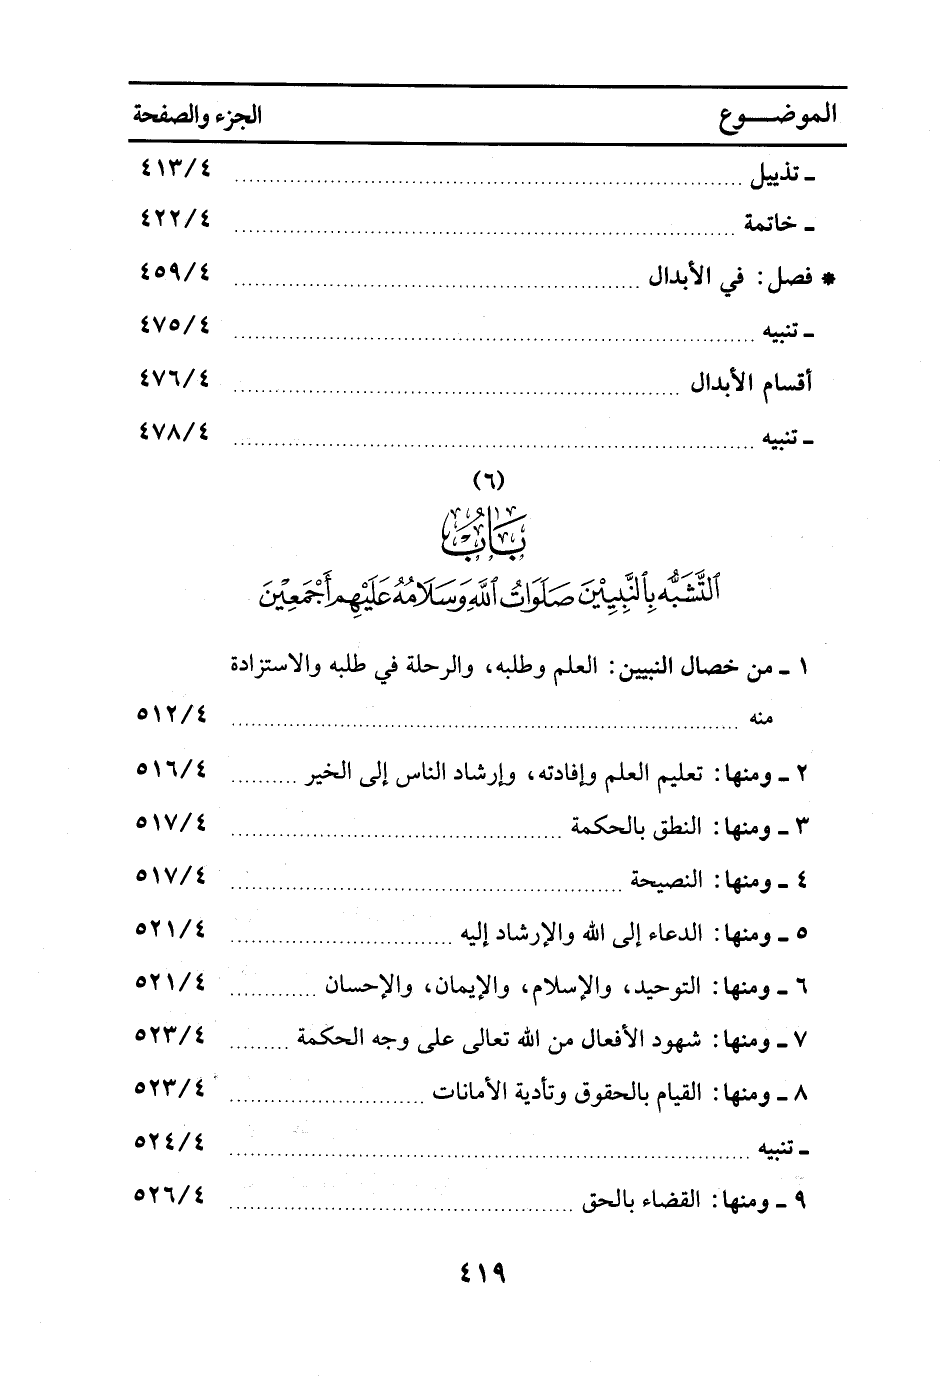 الموضـــوع الجزء والصفحة
ـ تذييل ........ ٤١٣/٤
ـ خاتمة ........ ٤٢٢/٤
* فصل: في الأبدال ........ ٤٥٩/٤
ـ تنبيه ........ ٤٧٥/٤
أقسام الأبدال ........ ٤٧٦/٤
ـ تنبيه ........ ٤٧٨/٤
(٦)
بَابُ
التَّشَبُّه بِالنَّبِيِّيْنَ صَلَوَاتُ اللَّهِ وَسَلَامُهُ عَلَيْهِم أَجْمَعِيْنَ
١ ـ من خصال النبيين: العلم وطلبه، والرحلة في طلبه والاستزادة
منه ........ ٥١٢/٤
٢ ـ ومنها: تعليم العلم وإفادته، وإرشاد الناس إلى الخير ........ ٥١٦/٤
٣ ـ ومنها: النطق بالحكمة ........ ٥١٧/٤
٤ ـ ومنها: النصيحة ........ ٥١٧/٤
٥ ـ ومنها: الدعاء إلى الله والإرشاد إليه ........ ٥٢١/٤
٦ ـ ومنها: التوحيد، والإسلام، والإيمان، والإحسان ........ ٥٢١/٤
٧ ـ ومنها: شهود الأفعال من الله تعالى على وجه الحكمة ........ ٥٢٣/٤
٨ ـ ومنها: القيام بالحقوق وتأدية الأمانات ........ ٥٢٣/٤
ـ تنبيه ........ ٥٢٤/٤
٩ ـ ومنها: القضاء بالحق ........ ٥٢٦/٤
٤١٩